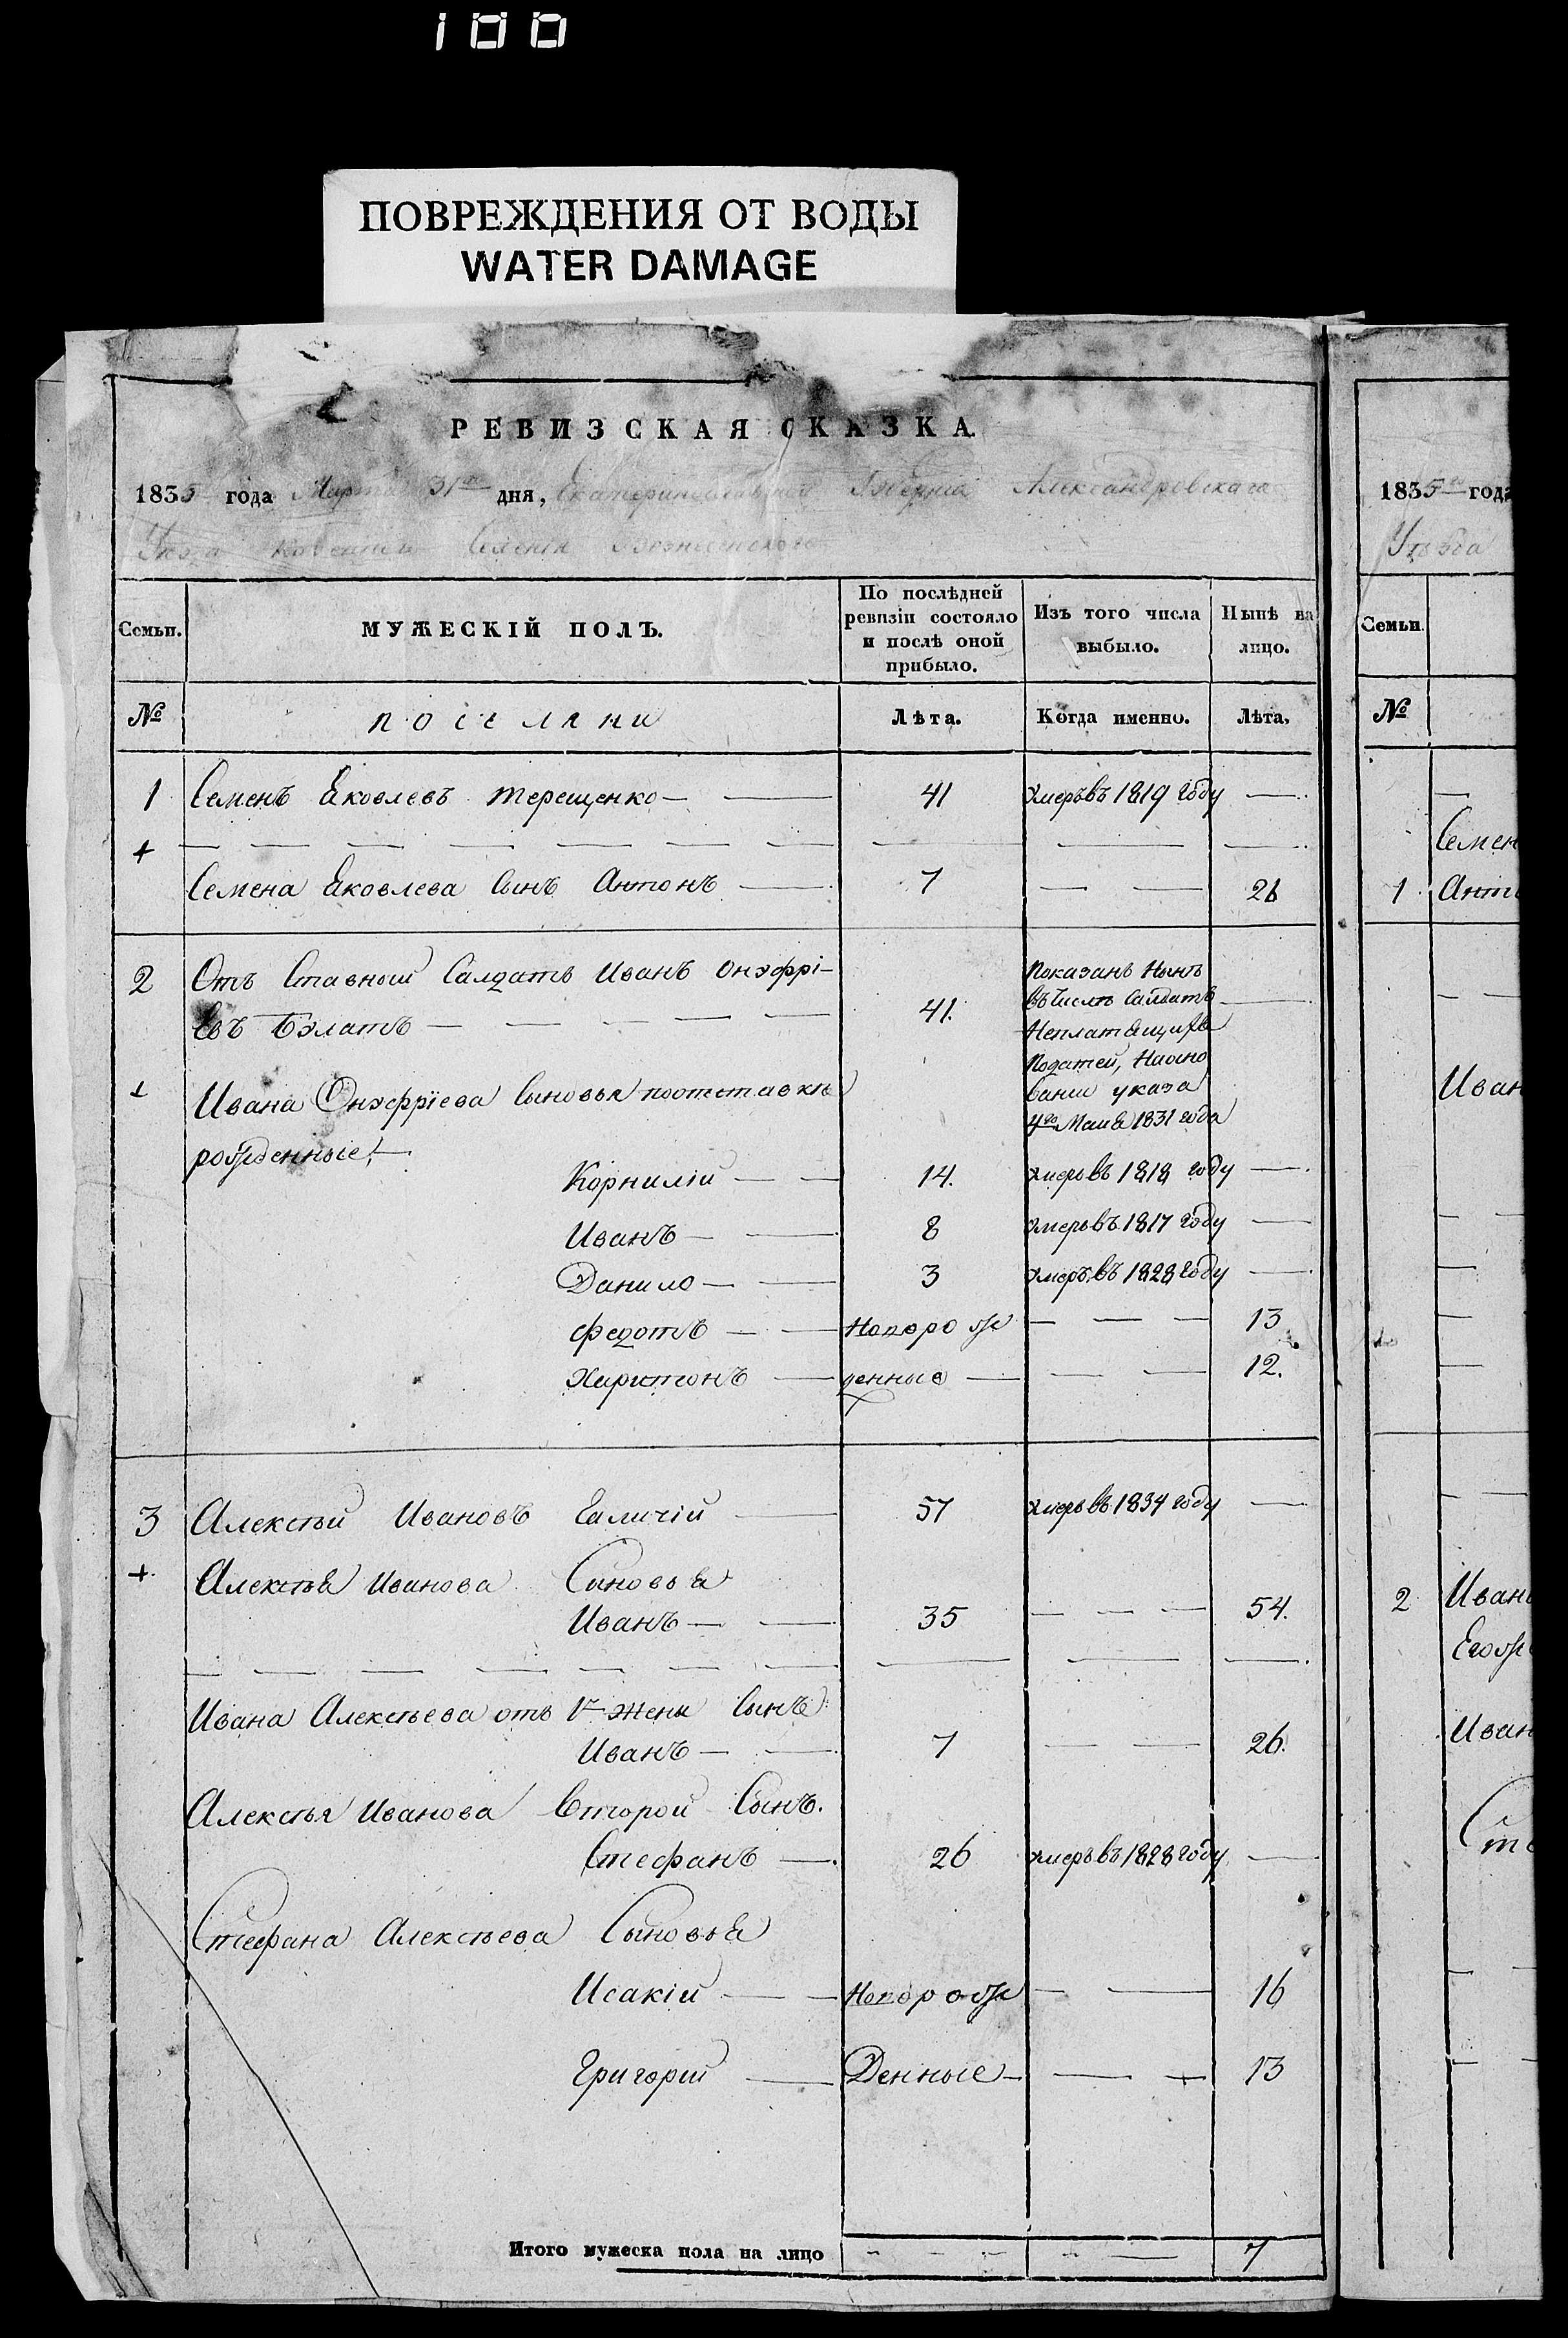 100
ПОВРЕЖДЕНИЯ ОТ ВОДЫ
WATER DAMAGE
РЕВИЗСКАЯ СКАЗКА
1835 года Марта 31го дня, Екатеринославской Губернии Александровскаго
Уезда Казеннаго Селения Вознесенскаго
Семьи. МУЖЕСКІЙ ПОЛЪ. По послѣдней ревизіи состояло и послѣ оной прибыло. Изъ того числа выбыло. Нынѣ на лицо.
№ поселяни Лѣта. Когда именно. Лѣта.
1 Семенъ Яковлевъ Терещенко — 41 Умеръ въ 1819 году —
+
Семена Яковлева Сынъ Антонъ — 7 — 26
2 Отъ Ставной Салдатъ Иванъ Онуфрі-
евъ Булатъ — 41. Показанъ Нынѣ
въ Числѣ Салдатъ —
Неплатящихъ
Податей, На осно
вании указа
4го Маия 1831 года
+ Ивана Онуфріева Сыновья по отставкѣ
рожденные: —
Корнилій — 14. Умеръ въ 1818 году —
Иванъ — 8 Умеръ въ 1817 году —
Данило — 3 Умеръ въ 1828 году —
Федотъ — Новорож — 13
Харитонъ — денные — 12.
3 Алексѣй Ивановъ Галичій — 57 Умеръ въ 1834 году —
+ Алексѣя Иванова Сыновья
Иванъ — 35 — 54.
Ивана Алексѣева отъ 1й жены Сынъ
Иванъ — 7 — 26.
Алексѣя Иванова Второй Сынъ.
Стефанъ — 26 Умеръ въ 1828 году —
Стефана Алексѣева Сыновья
Исакій — Новорож — 16
Григорій — Денные — 13
Итого мужеска пола на лицо — 7
1835го года
Уѣзда
Семьи.
№
Семен
1 Анто
Иван
2 Иван
Егож
Иван
Сте